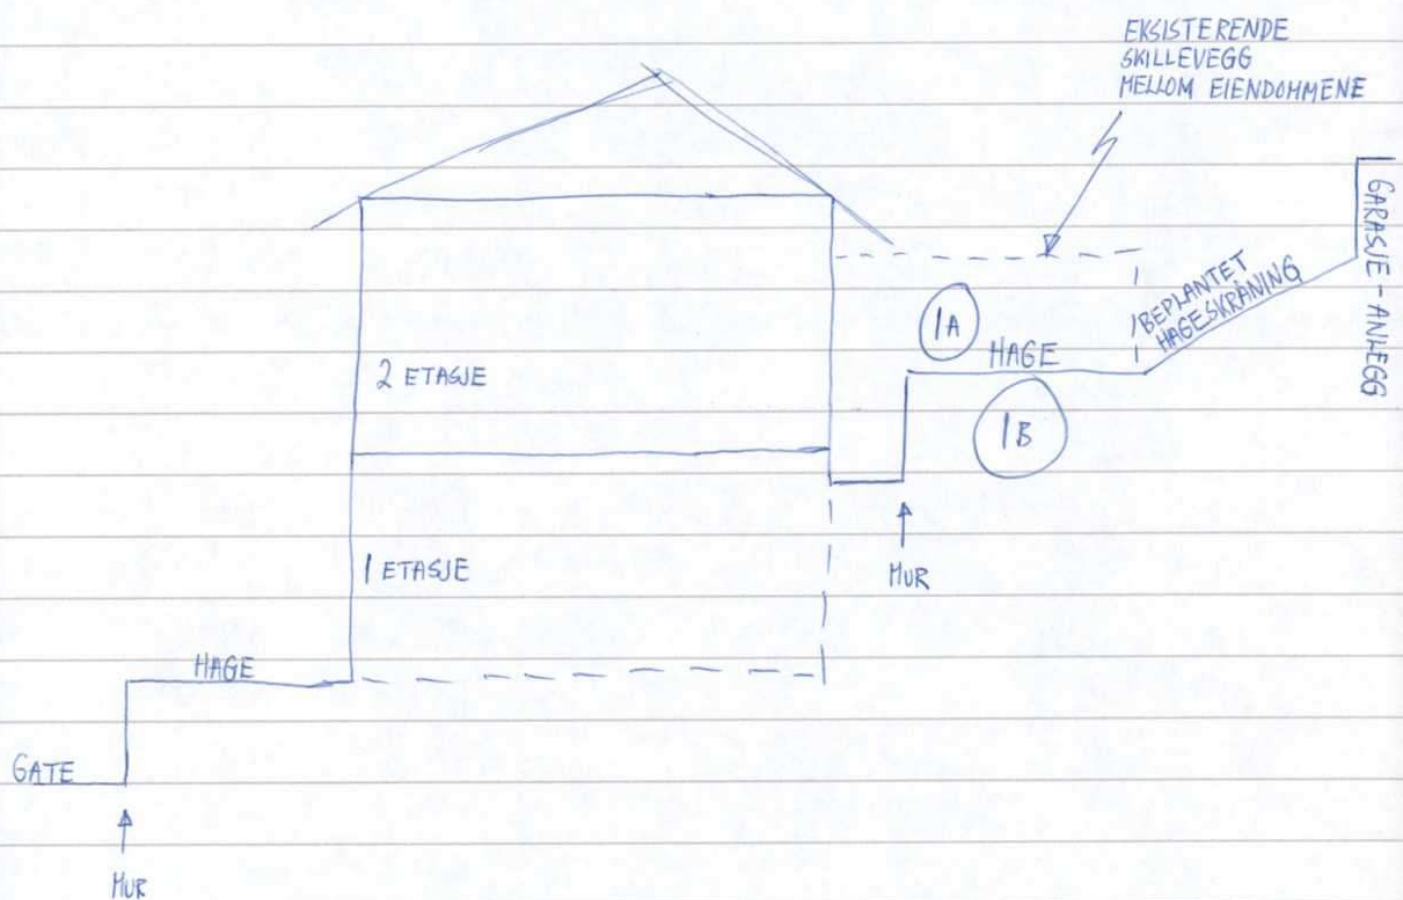 EKSISTERENDE
SKILLEVEGG
MELLOM EIENDOMMENE
GARASJE-ANLEGG
BEPLANTET
HAGESKRÅNING
1A
HAGE
1B
2 ETASJE
MUR
1 ETASJE
HAGE
GATE
MUR